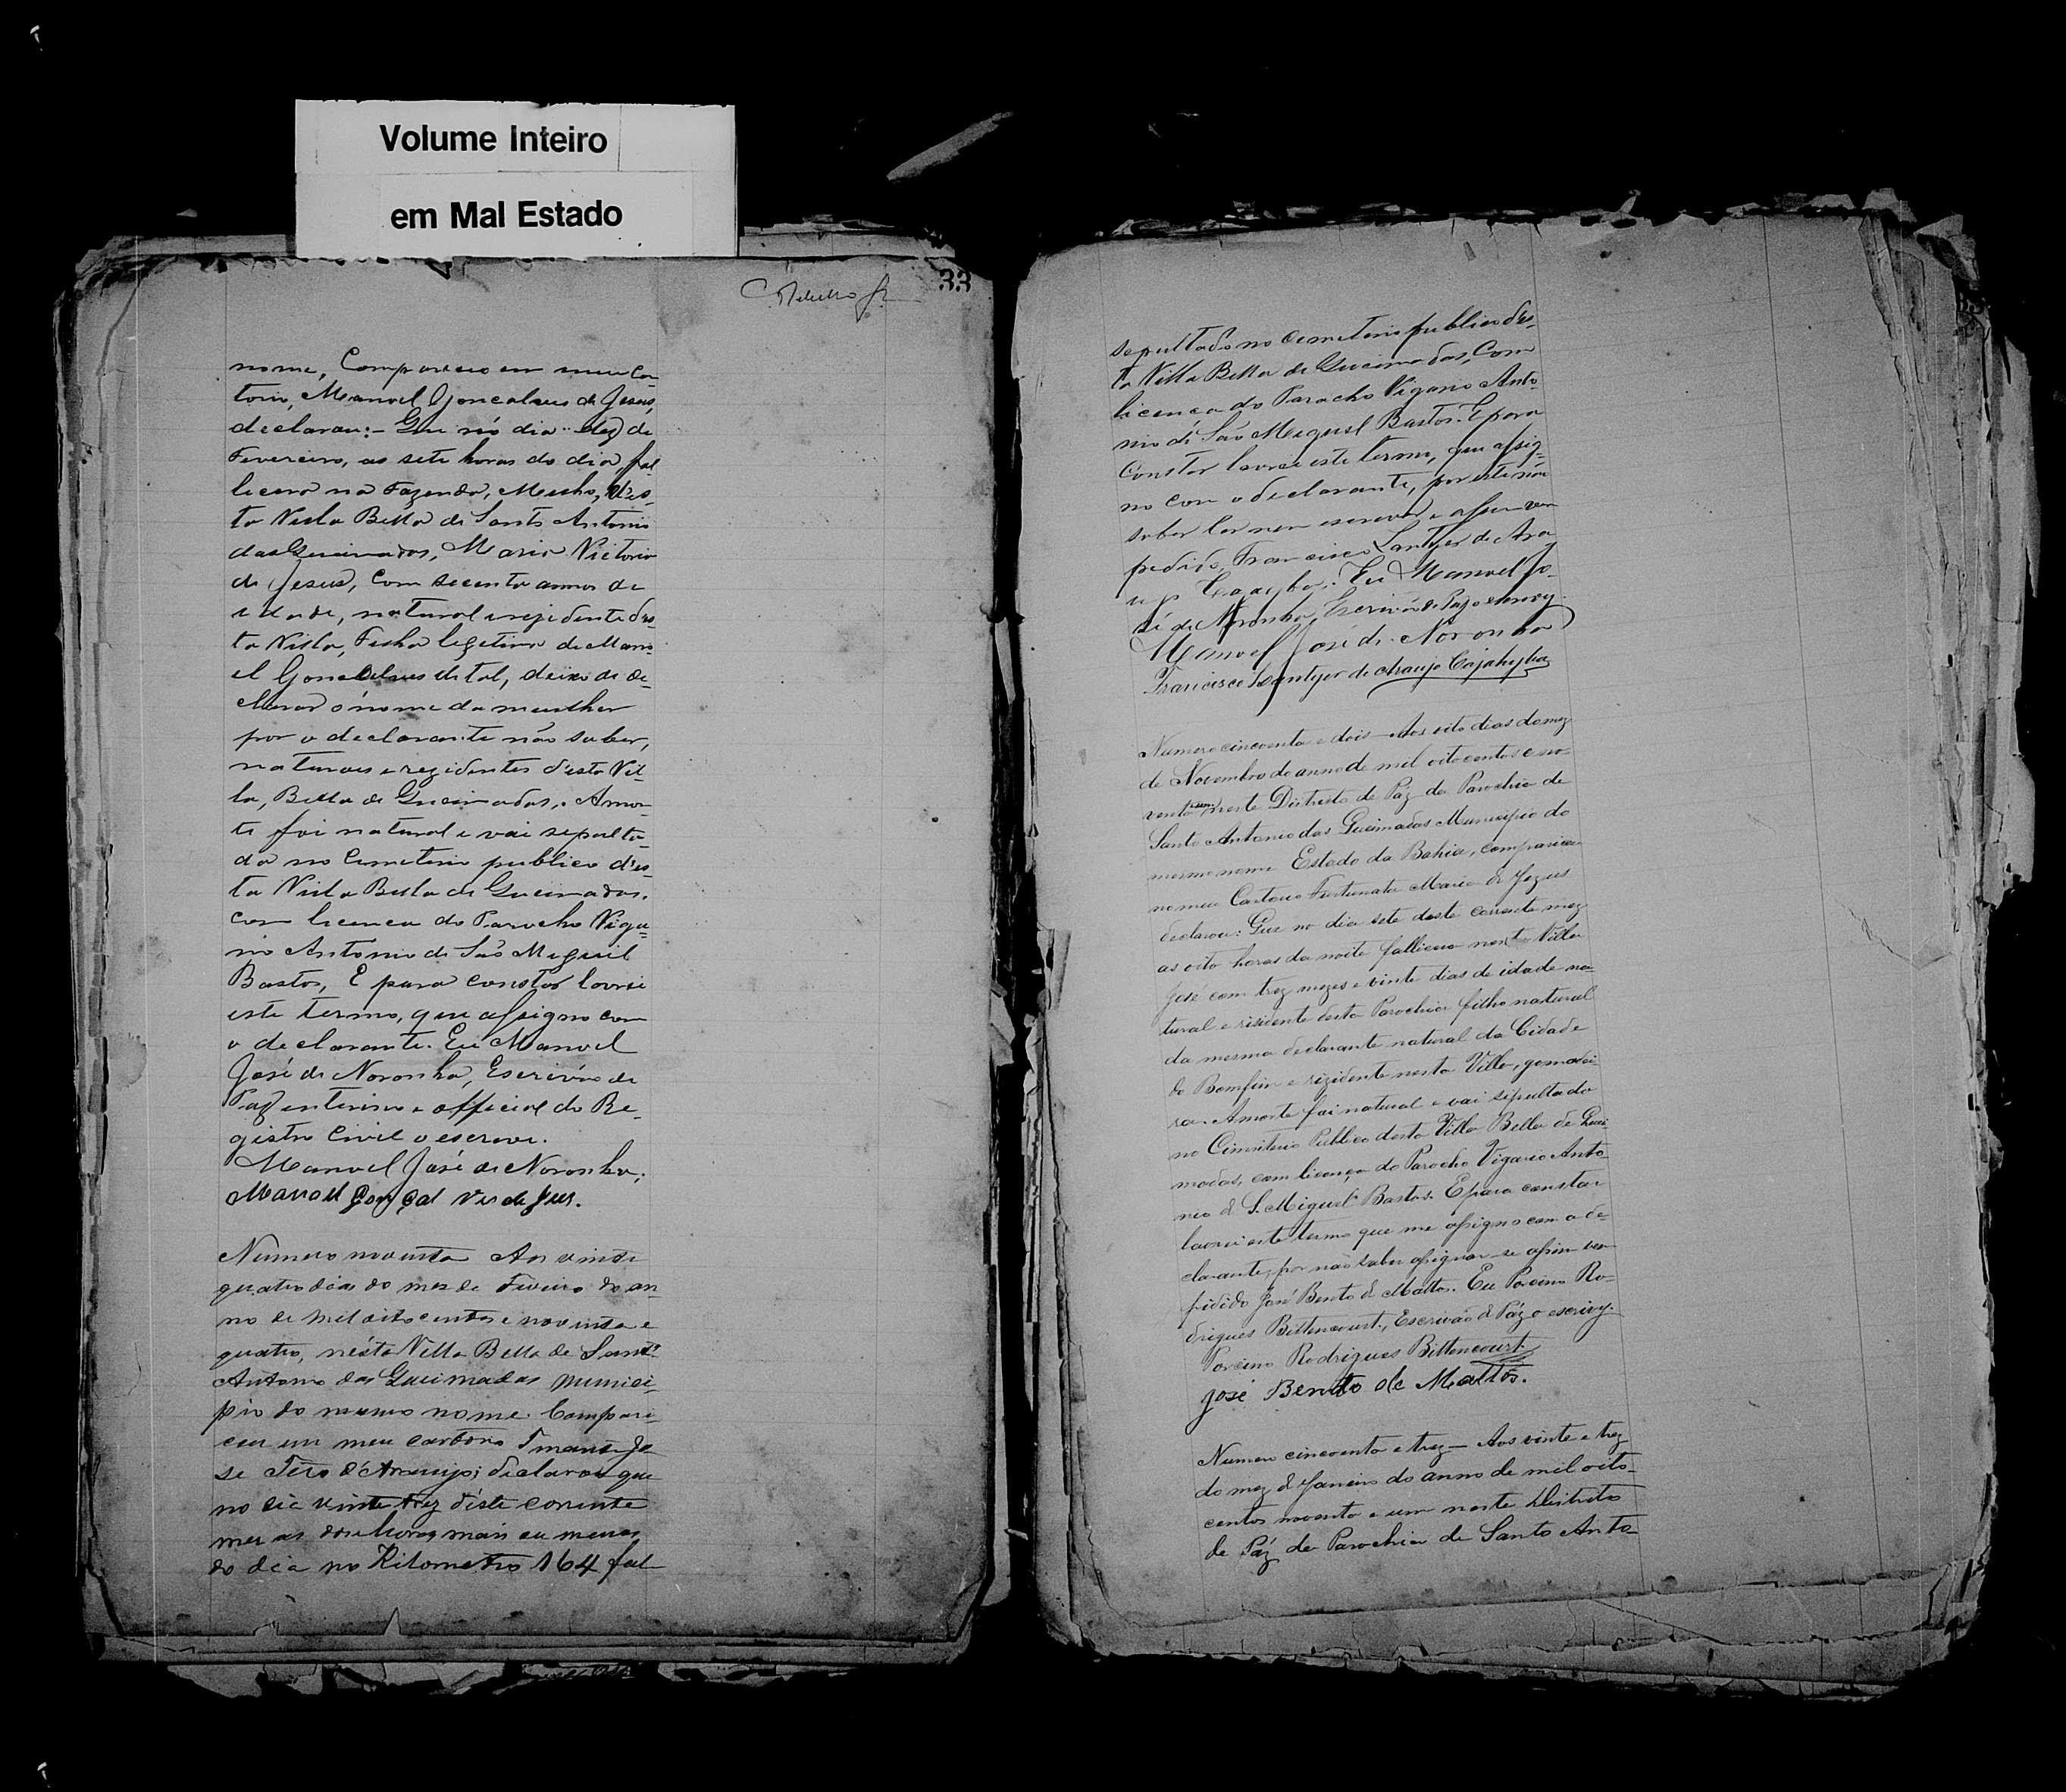 Volume Inteiro
em Mal Estado
33
nome, Compareceu em meu Car-
torio, Manoel Goncalves de Jesus,
declarou:- Que nó dia dez de
Fevereiro, as sete horas do dia, fal-
licera na Fazenda, d'es-
ta Villa Bella de Santo Antonio
das Queimados, Maria Victoria
de Jesus, Com secenta annos de
idade, natural e rezidente d'es-
ta Villa, Filha legetima de Mano-
el Goncalves de tal, deixo de de-
clarar ó nome da meulher
por o declarante não saber,
naturaes e rezidentes d'esta Vil-
la, Bella de Queimados. A mor-
te foi natural e vai sepulta-
da no Cemeterio publico d'es-
ta Villa Bella de Queimados.
com licenca do Parocho Viga-
rio Antonio de São Miguil
Bastos, E para constar lavrei
este termo, que assigno com
o declarante. Eu Manoel
José de Noronha, Escrivão de
Paz enterino e official do Re-
gistro Civil o escrevi.
Manoel José de Noronha,
Manoel Gonçal ves de Jus.
Numero noventa Aos vinte
quatro dias do mes de Fiveiro do an-
no de mil oito centos e noventa e
quatro, nésta Villa Bella de Santo
Antonio das Queimadas Munici-
pio do mesmo nome. Compari-
ceu em meu cartorio Jo-
se d'Araujo; declarou que
no dia vinte trez déste corrente
mes as doze horas mais ou menos
do dia no Kilometro 164 fal-
sepultado no Cemeterio publico d'es-
ta Villa Bella de Queimados, Com
licenca do Parocho Vigario Anto-
nio de São Meiguel Bastos. E para
Constar lavrei este termo, que assig-
no com o declarante, por este não
saber ler nem escrever, e assim vem
pedido, Francisco de Ara-
ujo Cajayba. Eu Manoel Jo-
sé de Noronha, Escrivão de Paz o escrevy.
Manoel José de Noronha
Francisco de Araujo Cajahyba
Numero cincoenta e dois - Aos oito dias do mez
de Novembro do anno de mil oito centos e no-
venta e um, neste Districto de Páz da Parochia de
Santo Antonio das Queimadas Municipio do
mesmo nome Estado da Bahia, compareceu
no meu Cartorio Furtunata Maria de Jezus
declarou: Que no dia sete deste corrente mez
as oito horas da noite falliceu nesta Villa
José com trez mezes e vinte dias de idade na-
tural e risidente desta Parochia filho natural
da mesma declarante natural da Cidade
do Bomfim e rizidente nesta Villa, gomadei-
ra. A morte foi natural e vai sepultado
no Cimiterio Publico desta Villa Bella de Quei-
madas, com licença do Parocho Vigario Anto-
nio de S. Miguel Bastos. E para constar
lavrei este termo que me assigno com a de-
clarante, por não saber assignar-se assim vem
pidido José Bento de Mattos. Eu Porcino Ro-
drigues Bittencourt, Escrivão de Páz o escrivy.
Porcino Rodrigues Bittencourt
José Bento de Mattos.
Numero cincoenta e trez - Aos vinte e trez
do mez de Janeiro do anno de mil oito-
centos noventa e um neste Distrito
de Páz da Parochia de Santo Anto-